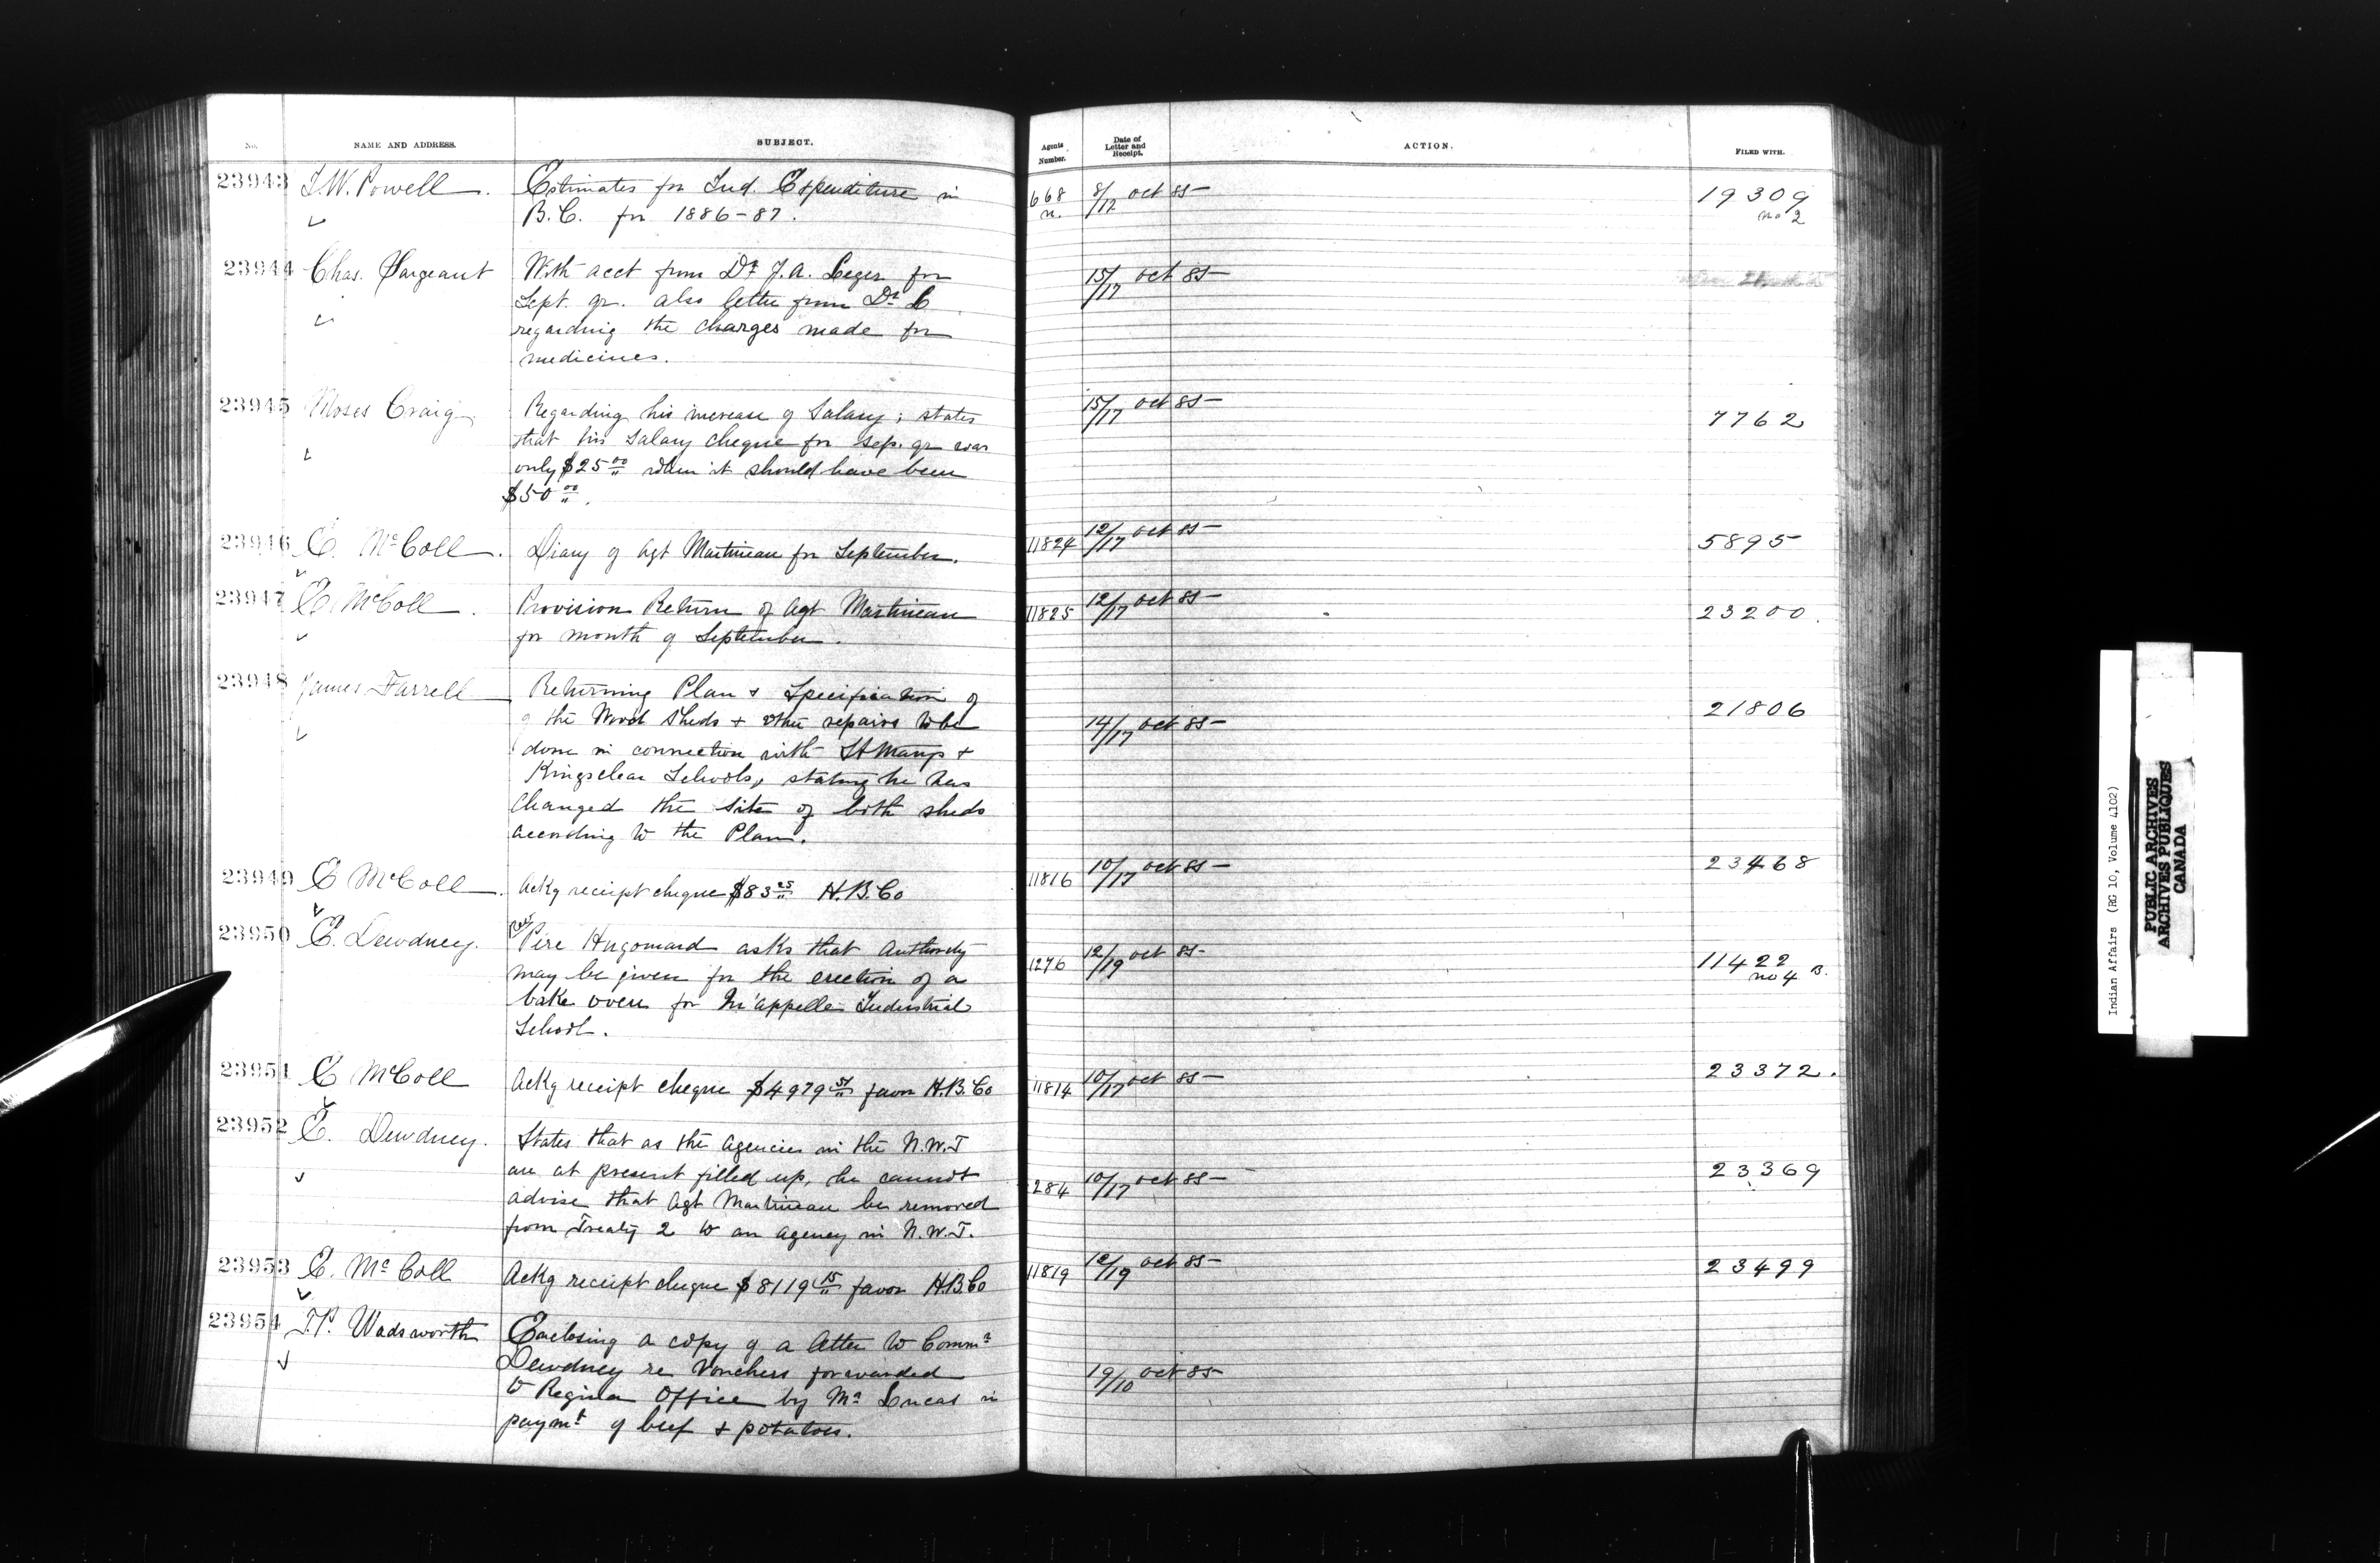 No. NAME AND ADDRESS. SUBJECT. Agents Number. Date of Letter and Receipt. ACTION. FILED WITH.
23943 I.W. Powell. Estimates for Ind. Expenditure in 668 8/12 oct 85 19309
B.C. for 1886-87. n. no 2
23944 Chas. Sargeant With acct from Dr J.A. Leger for 15/17 oct 85
Sept. qr. also letter from Dr L
regarding the charges made for
medicines.
23945 Moses Craig Regarding his increase of Salary; states 15/17 oct 85 7762
that his Salary cheque for Sep. qr was
only $25 00 when it should have been
$50 00.
23946 E. McColl. Diary of Agt Martineau for September. 11824 12/17 oct 85 5895
23947 E. McColl. Provision Return of Agt Martineau 11825 12/17 oct 85 23200.
for month of September.
23948 James Farrell Returning Plan & Specification of 21806
of the Wood Sheds & other repairs to be 14/17 oct 85
done in connection with St Marys &
Kingsclear Schools, stating he has
changed the site of both sheds
according to the Plan.
23949 E McColl. Ackg receipt cheque $83 25 H.B.Co 11816 10/17 oct 85 23468
23950 E. Dewdney. Revd Père Hugonard asks that Authority 1276 12/19 oct 85 11422
may be given for the erection of a no 4 B.
bake oven for Qu'appelle Industrial
School.
23951 E McColl Ackg receipt cheque $4979 51 favor H.B.Co 11814 10/17 oct 85 23372.
23952 E. Dewdney. States that as the agencies in the N.W.T
are at present filled up, he cannot 23369
advise that Agt Martineau be removed 284 10/17 oct 85
from Treaty 2 to an agency in N.W.T.
23953 E. McColl Ackg receipt cheque $8119 15 favor H.B.Co 11819 12/19 oct 85 23499
23954 T.P. Wadsworth Enclosing a copy of a letter to Commr
Dewdney re Vouchers forwarded 19/10 oct 85
to Regina Office by Mr Lucas in
paymt of beef & potatoes.
Indian Affairs (RG 10, Volume 4102)
PUBLIC ARCHIVES
ARCHIVES PUBLIQUES
CANADA